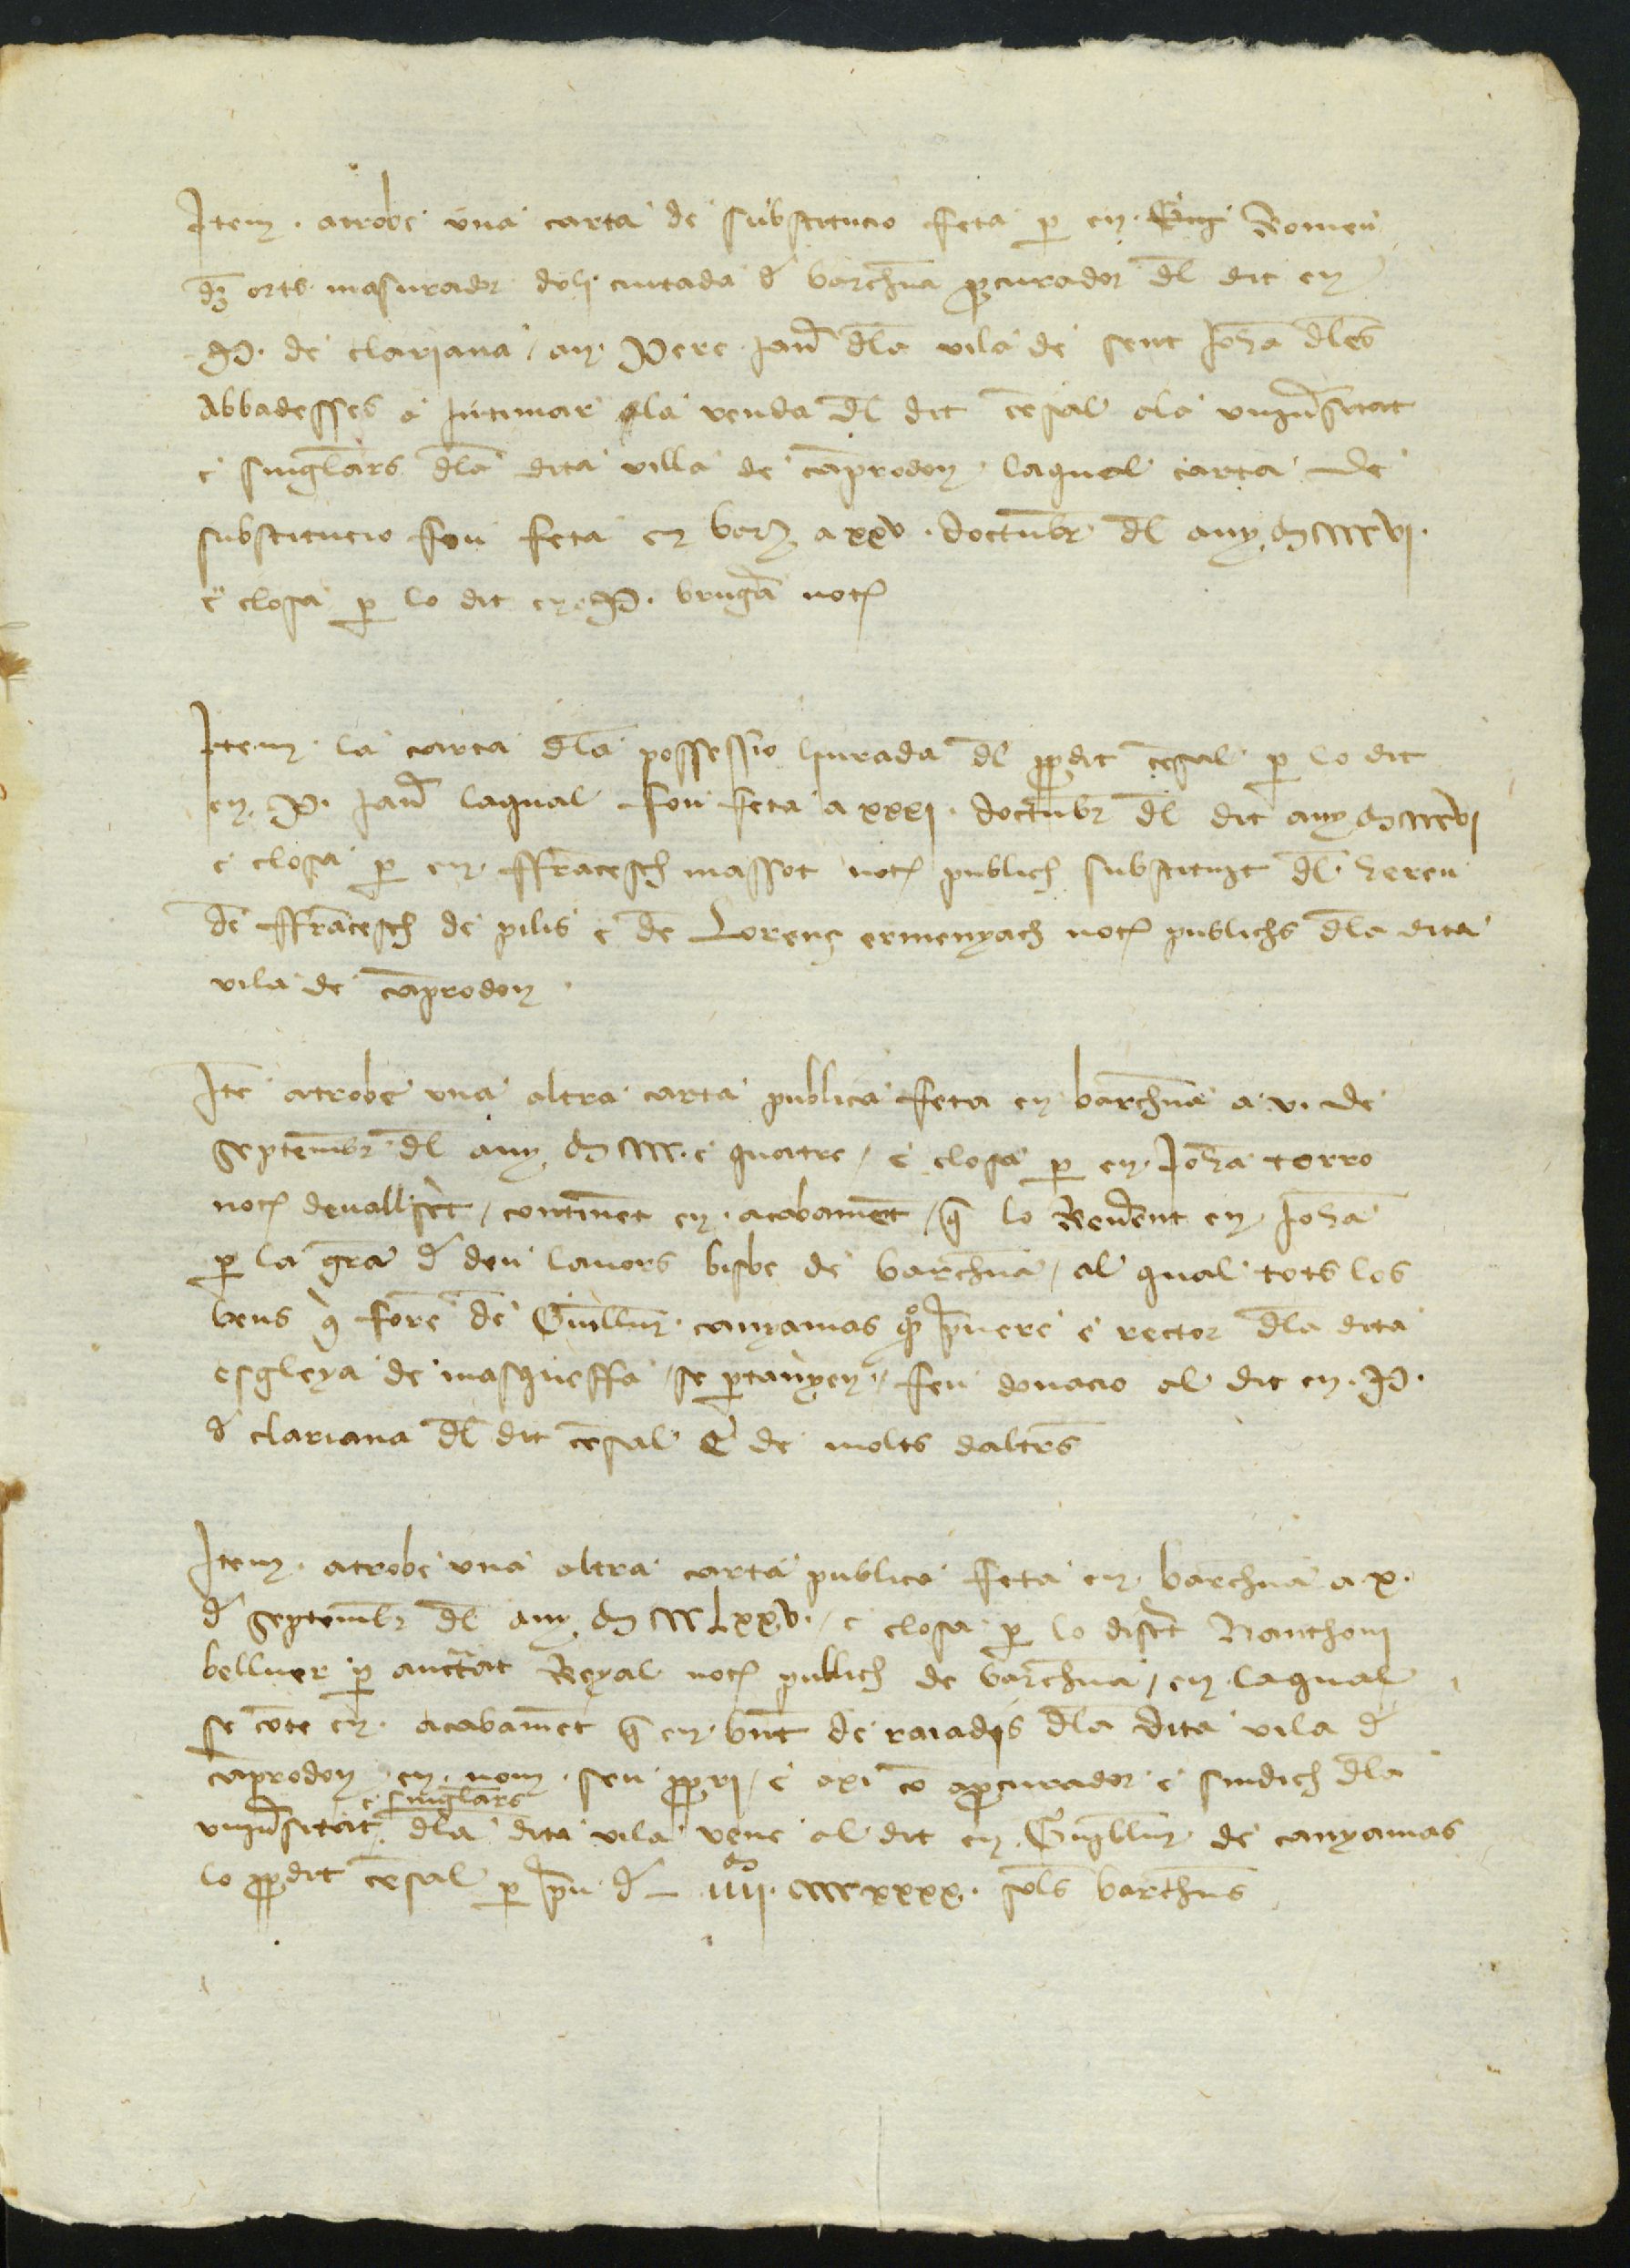 Item . atrobe una carta de substitucio feta p en . Romeu
orts masurador doli ciutada d barchna pcurador dl dit en
P. de clariana / an Pere Jaur dla vila de sent Joha dles
Abbadesses a intimar la venda dl dit cesal ala uniusitat
e singlars dla dita villa de caprodon laqual carta de
substitucio fou feta en barz a xxv . doctubr dl any M cccc vj .
e closa p lo dit en P. bruga not
Item la carta dla possessio liurada dl ppdit cesal p lo dit
en P. Jaur laqual fou feta a xxxj . doctubr dl dit any M cccc vj
e closa p en ffracesch massot not publich substituyt dl hereu
de ffracesch de pilis e de Lorenç ermenyach not publichs dla dita
vila de caprodon .
Ite atrobe una altra carta publica feta en barchna a v. de
septembr dl any M cccc . e quatre / e closa p en Joha torro
not devallscrt / continet en acabamet / q lo Reuerent en Joha
p la gra d deu lauors bisbe de barchna / al qual tots los
bens q fore de Guillm canyamas qo puere e rector dla dita
esgleya de masqueffa / se ptanyen / feu donacio al dit en . P .
d clariana dl dit cesal e de molts daltres
Item . atrobe una altra carta publica feta en barchna a x .
d septembr dl any M ccc Lxxv . / e closa p lo discret Nanthoni
bellver p auctat Reyal not publich de barchna / en laqual
se cote en acabamet q en bnt de raiadis dla dita vila d
caprodon en nom seu ppri / e axi co a pcurador e sindich dla
uniusitat e singlars dla dita vila vene al dit en Guillm de canyamas
lo ppdit cesal p pu d — iiij M cccc xxxx . sols barchns